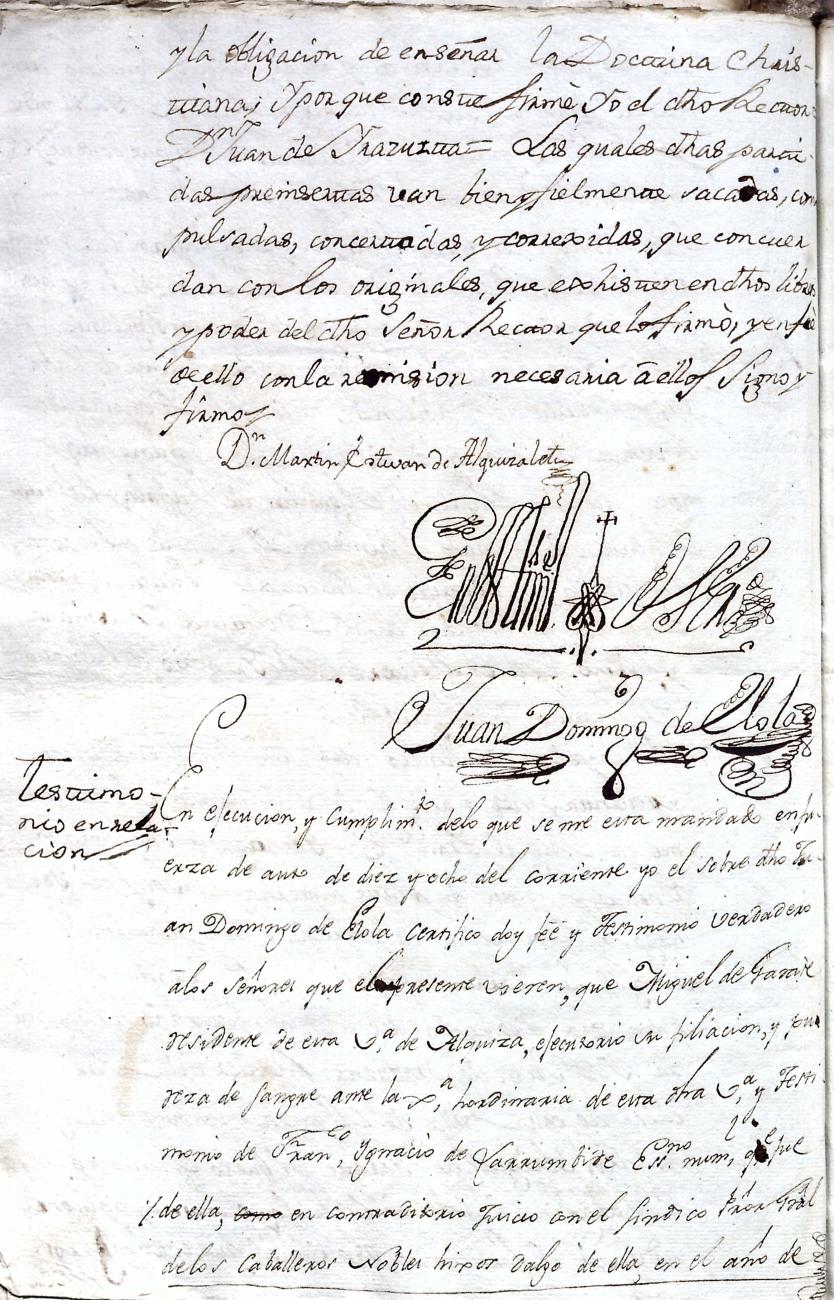 y la obligacion de enseñar la Doctrina Chris-
tiana; Y porque conste firmè Yo el dho Rector
Dn Juan de Yrazuzta= Las quales dhas parti-
das preinsertas van bien y fielmente sacadas, com
pulsadas, concertadas, y correxidas, que concuer
dan con los originales, que exhisten en dhos libros
y poder del dho Señor Rector que lo firmò, y en feè
de ello con la remision necesaria â ellos Signo y
firmo
Dn. Martin Estevan de Alquizalete
En testimo de Verd
Juan Domingo de Elola
Testimo-
nio en rela-
cion
En ejecucion, y Cumplimto. delo que se me esta mandado en fu-
erza de auto de diez y ocho del corriente yo el sobre dho Ju-
an Domingo de Elola Certifico doy feé y Testimonio Verdadero
âlos señores que el presente vieren, que Miguel de Garate
residente de esta Va. de Alquiza, ejecutorio su filiacion, y lim
pieza de sangre ante la xa, hordinaria de esta dha Va, y Testi-
monio de Franco, Ygnacio de Yarrumbide Essno. num, qe fue
de ella, como en contraditorio Juicio con el Sindico Pror Gral
delos Caballeros Nobles hixos dalgo de ella, en el año de